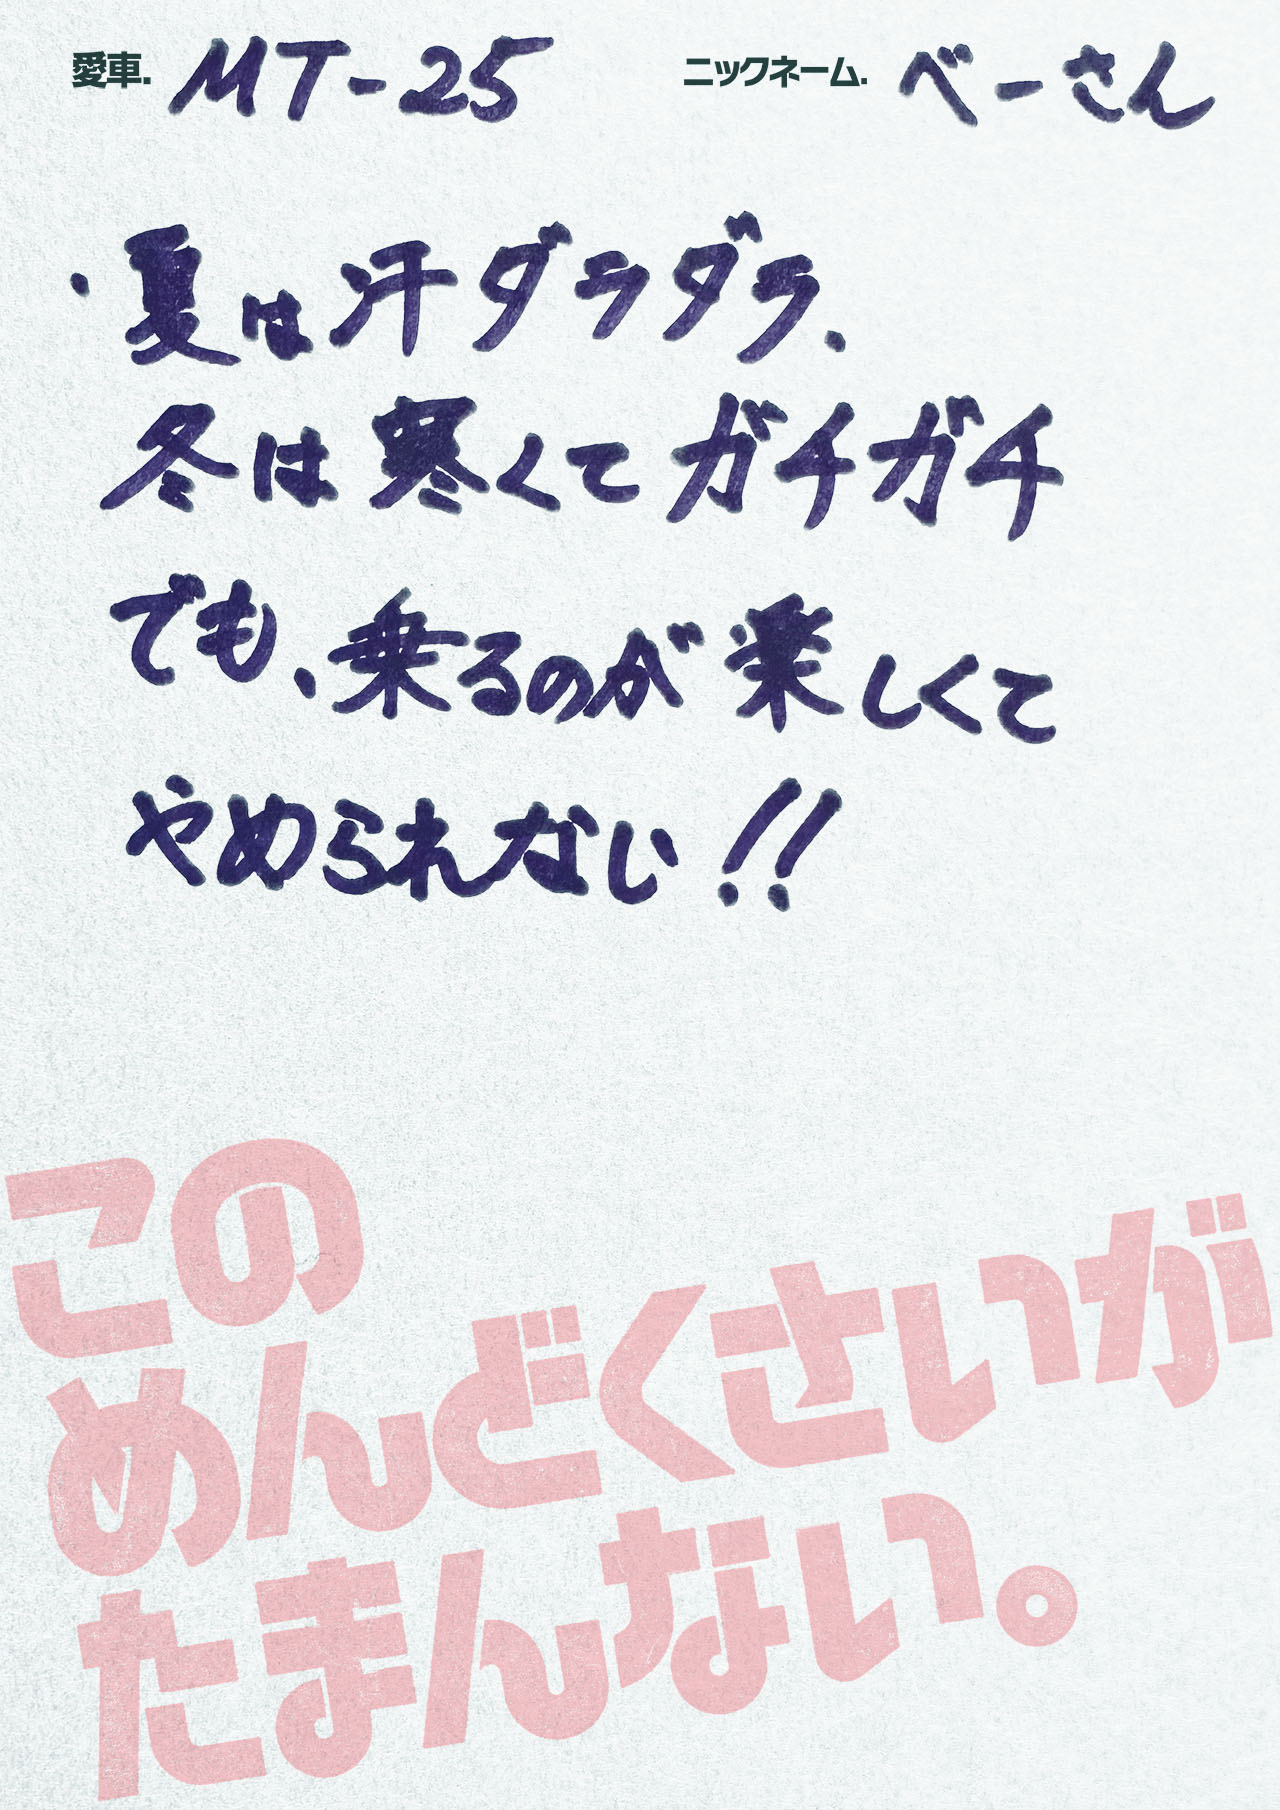 愛車. MT-25 ニックネーム. べーさん
・夏は汗ダラダラ、
冬は寒くてガチガチ
でも、乗るのが楽しくて
やめられない!!
この
めんどくさいが
たまんない。